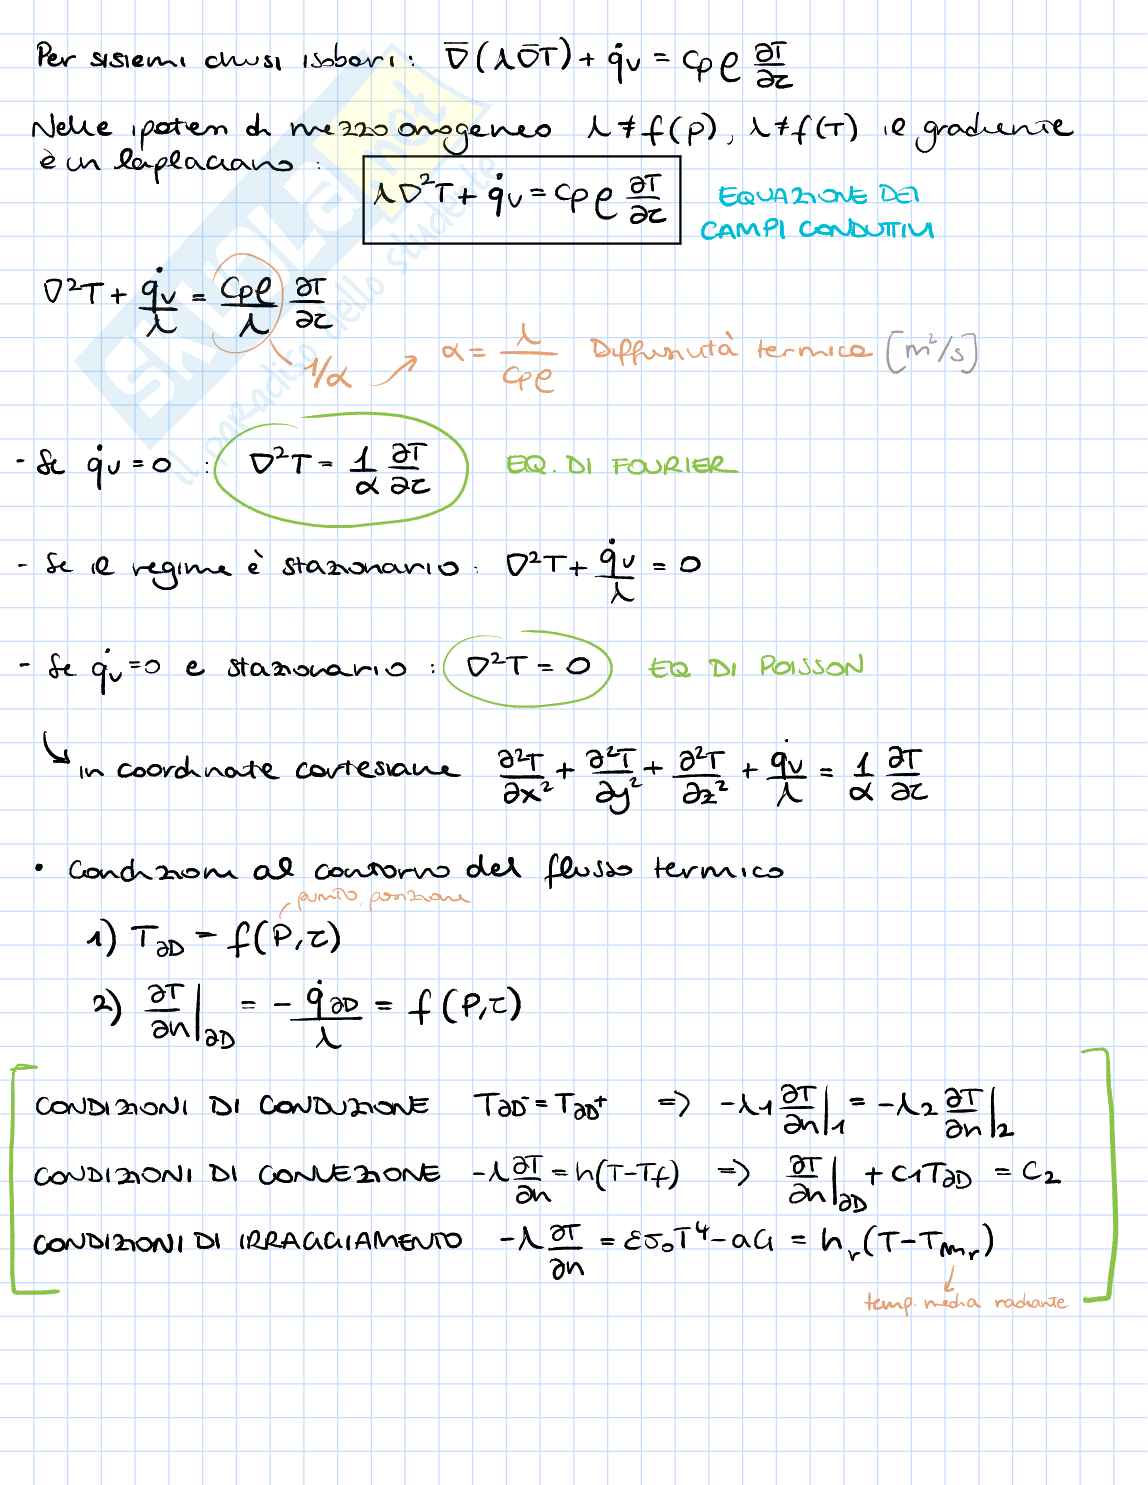 Per sistemi chiusi isobari: ∇̄(λ∇̄T) + q̇v = cpρ ∂T/∂τ
Nelle ipotesi di mezzo omogeneo λ≠f(P), λ≠f(T) il gradiente
è un laplaciano:
λ∇²T + q̇v = cpρ ∂T/∂τ EQUAZIONE DEI
CAMPI CONDUTTIVI
∇²T + q̇v/λ = cpρ/λ ∂T/∂τ
1/α ↗ α = λ/cpρ Diffusività termica [m²/s]
- Se q̇v=0 : ∇²T = 1/α ∂T/∂τ EQ. DI FOURIER
- Se il regime è stazionario: ∇²T + q̇v/λ = 0
- Se q̇v=0 e stazionario : ∇²T = 0 EQ DI POISSON
↳ in coordinate cartesiane ∂²T/∂x² + ∂²T/∂y² + ∂²T/∂z² + q̇v/λ = 1/α ∂T/∂τ
• Condizioni al contorno del flusso termico
punto, posizione
1) T∂D = f(P,τ)
2) ∂T/∂n|∂D = - q̇∂D/λ = f(P,τ)
CONDIZIONI DI CONDUZIONE T∂D⁻ = T∂D⁺ => -λ1 ∂T/∂n|1 = -λ2 ∂T/∂n|2
CONDIZIONI DI CONVEZIONE -λ ∂T/∂n = h(T-Tf) => ∂T/∂n|∂D + C1T∂D = C2
CONDIZIONI DI IRRAGGIAMENTO -λ ∂T/∂n = εσ₀T⁴ - aG = hr(T-Tmr)
temp. media radiante
skuola.net
il paradiso dello studente